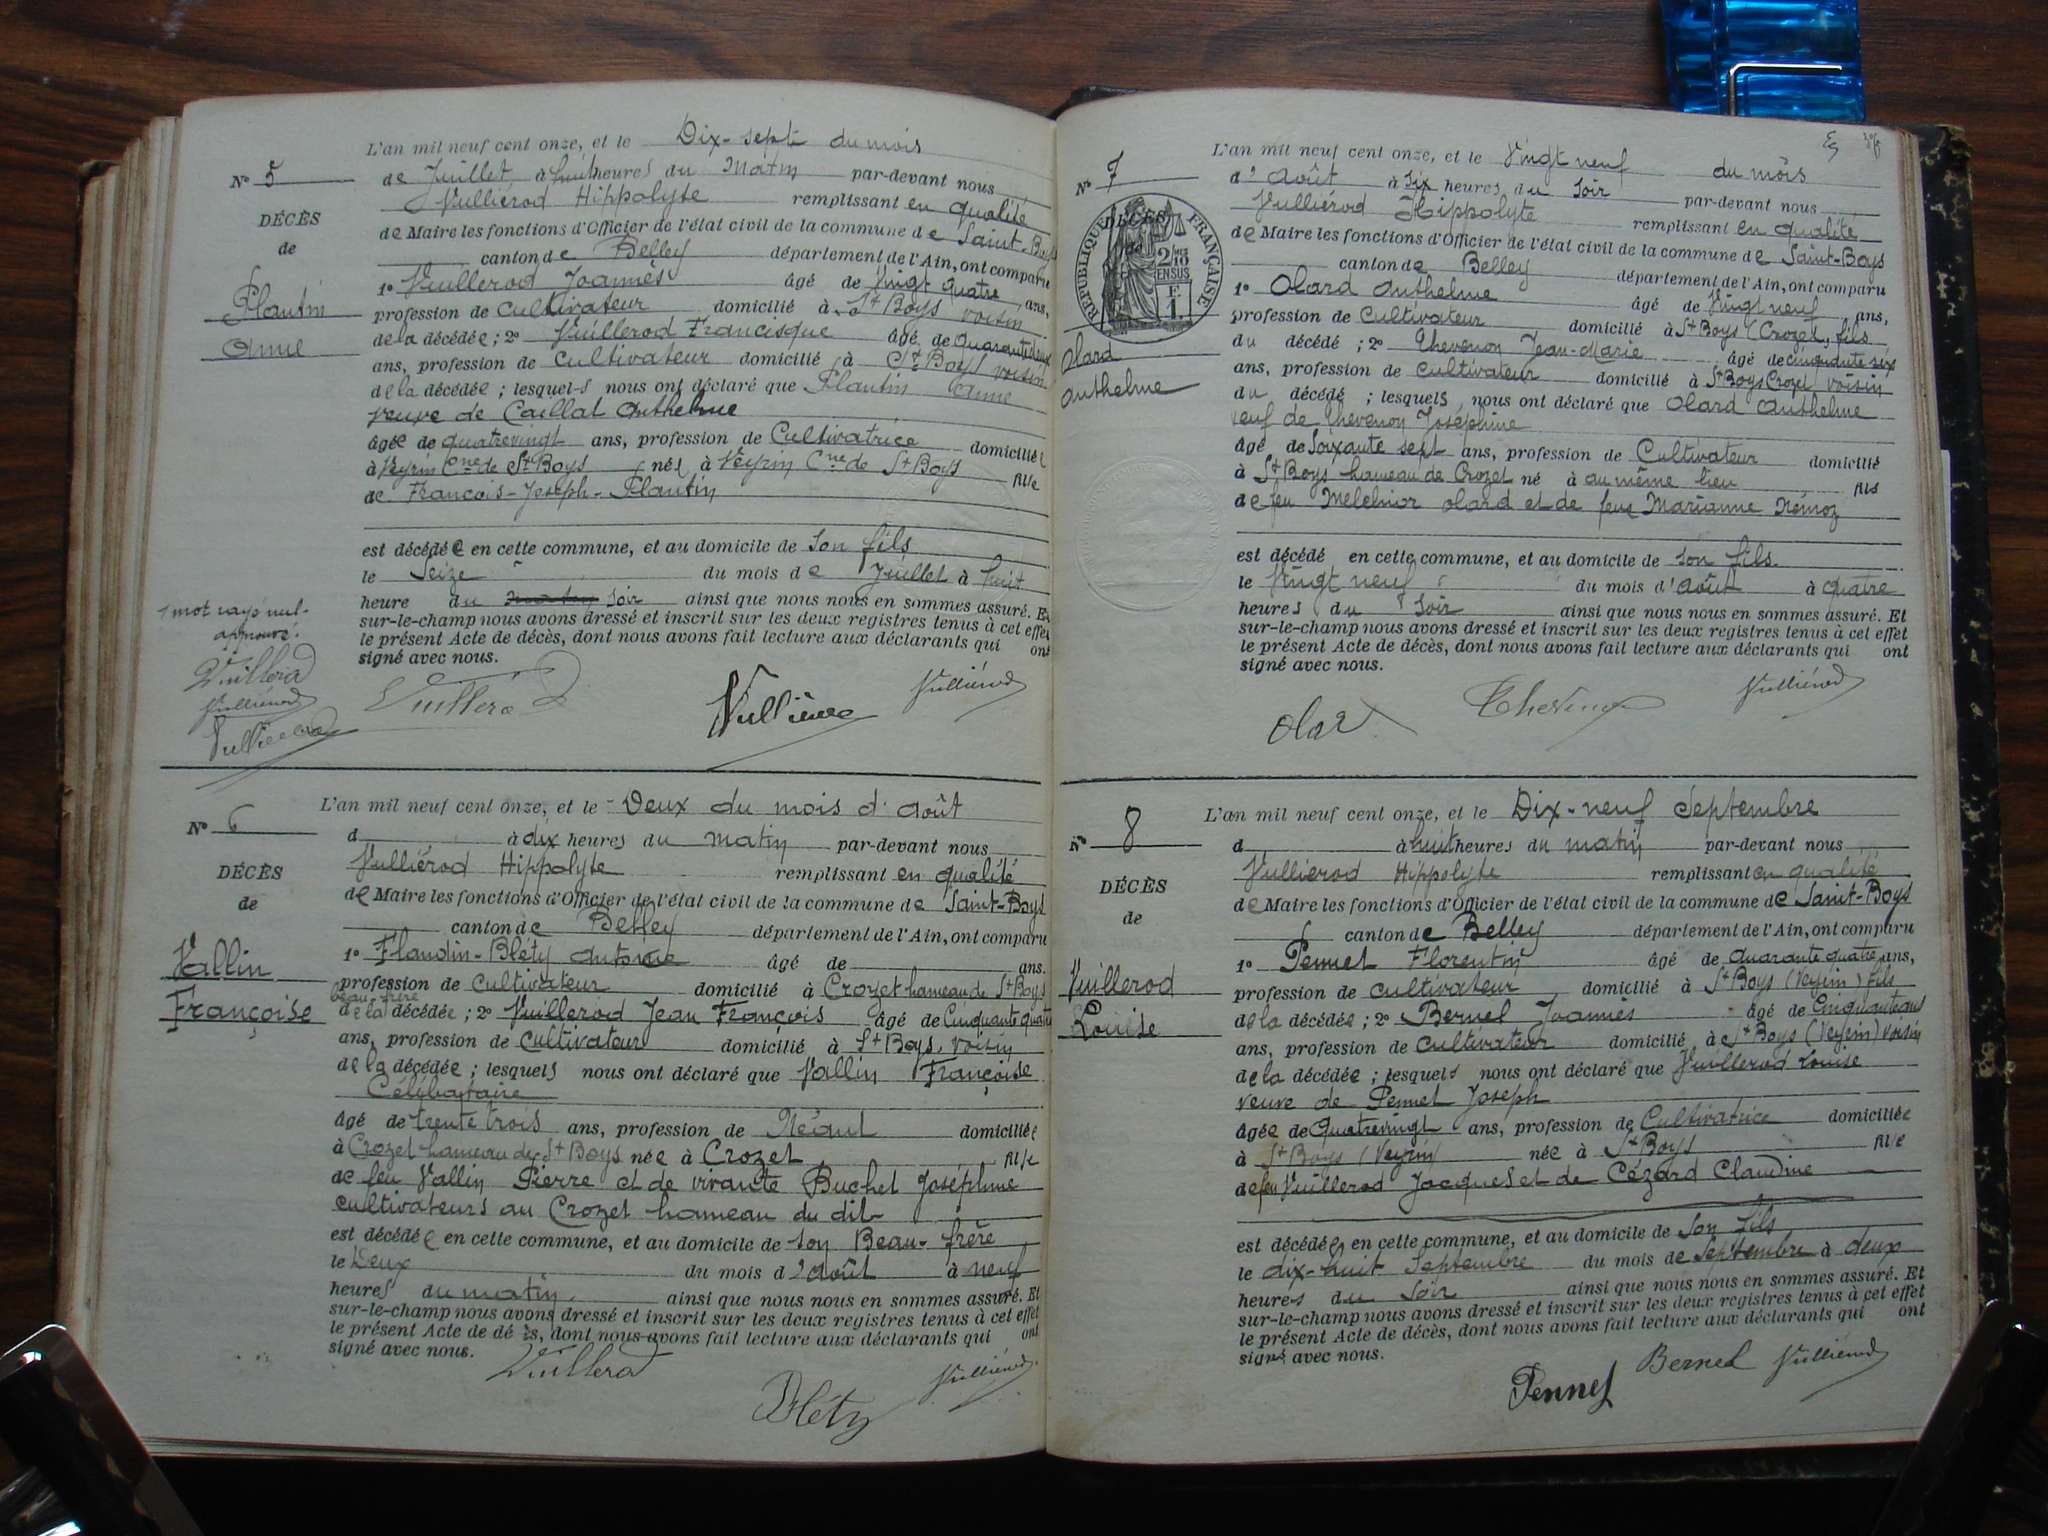 L'an mil neuf cent onze, et le Dix-sept du mois
No 5
de Juillet à huit heures du matin par-devant nous
Vulliérod Hippolyte remplissant en qualité
DÉCÈS
de Maire les fonctions d'Officier de l'état civil de la commune de Saint-Boys
de
canton de Belley département de l'Ain, ont comparu
1o Vuillerod Joannès âgé de Vingt quatre ans,
Plantin
profession de Cultivateur domicilié à St Boys voisin
Anne
de la décédée ; 2o Vuillerod Francisque âgé de Quarante deux
ans, profession de Cultivateur domicilié à St Boys voisin
de la décédée ; lesquels nous ont déclaré que Plantin Anne
Veuve de Caillat Anthelme
âgée de quatrevingt ans, profession de Cultivatrice domiciliée
à Veyrin Cne de St Boys née à Veyrin Cne de St Boys fille
de François-Joseph-Plantin
est décédée en cette commune, et au domicile de son fils
le Seize du mois de Juillet à huit
heure du matin soir ainsi que nous nous en sommes assuré. Et
sur-le-champ nous avons dressé et inscrit sur les deux registres tenus à cet effet
le présent Acte de décès, dont nous avons fait lecture aux déclarants qui ont
signé avec nous.
1 mot rayé nul.
approuvé.
Vuillerod
Vulliérod
Vuillerod Vulliérod
No 6
L'an mil neuf cent onze, et le Deux du mois d'Août
d à dix heures du matin par-devant nous
Vulliérod Hippolyte remplissant en qualité
DÉCÈS
de Maire les fonctions d'Officier de l'état civil de la commune de Saint-Boys
de
canton de Belley département de l'Ain, ont comparu
1o Flandin-Bléty Antoine âgé de ans.
Vallin
profession de Cultivateur domicilié à Crozet hameau de St Boys
Françoise
beau-frère
de la décédée ; 2o Vuillerod Jean François âgé de Cinquante quatre
ans, profession de Cultivateur domicilié à St Boys, voisin
de la décédée ; lesquels nous ont déclaré que Vallin Françoise
Célibataire
âgé de trente trois ans, profession de Négut domiciliée
à Crozet hameau de St Boys née à Crozet fille
de feu Vallin Pierre et de vivante Buchet Joséphine
cultivateurs au Crozet hameau du dit
est décédée en cette commune, et au domicile de son Beau-frère
le Deux du mois d'Août à neuf
heures du matin ainsi que nous nous en sommes assuré. Et
sur-le-champ nous avons dressé et inscrit sur les deux registres tenus à cet effet
le présent Acte de décès, dont nous avons fait lecture aux déclarants qui ont
signé avec nous.
Vuillerod
Bléty
Vulliérod
No 7
L'an mil neuf cent onze, et le Vingt neuf du mois
d'Août à six heures du soir par-devant nous
Vulliérod Hippolyte remplissant en qualité
DÉCÈS
RÉPUBLIQUE FRANÇAISE
2/10 EN SUS
F. 1.
de Maire les fonctions d'Officier de l'état civil de la commune de Saint-Boys
canton de Belley département de l'Ain, ont comparu
1o Olard Anthelme âgé de Vingt neuf ans,
profession de Cultivateur domicilié à St Boys (Crozet, fils
Olard
Anthelme
du décédé ; 2o Thevenon Jean-Marie âgé de cinquante six
ans, profession de Cultivateur domicilié à St Boys Crozet voisin
du décédé ; lesquels nous ont déclaré que Olard Anthelme
veuf de Thevenon Joséphine
âgé de Soixante sept ans, profession de Cultivateur domicilié
à St Boys hameau de Crozet né à au même lieu fils
de feu Melchior Olard et de feue Marianne Némoz
est décédé en cette commune, et au domicile de son fils.
le Vingt neuf du mois d'Août à quatre
heures du Soir ainsi que nous nous en sommes assuré. Et
sur-le-champ nous avons dressé et inscrit sur les deux registres tenus à cet effet
le présent Acte de décès, dont nous avons fait lecture aux déclarants qui ont
signé avec nous.
Olar Thevenon Vulliérod
No 8
L'an mil neuf cent onze, et le Dix-neuf Septembre
d à huit heures du matin par-devant nous
Vulliérod Hippolyte remplissant en qualité
DÉCÈS
de Maire les fonctions d'Officier de l'état civil de la commune de Saint-Boys
de
canton de Belley département de l'Ain, ont comparu
1o Pennet Florentin âgé de quarante quatre ans,
Vuillerod
profession de cultivateur domicilié à St Boys (Veyrin) fils
Louise
de la décédée ; 2o Bernel Joannès âgé de Cinquante ans
ans, profession de cultivateur domicilié à St Boys (Veyrin) voisin
de la décédée ; lesquels nous ont déclaré que Vuillerod Louise
veuve de Pennet Joseph
âgée de Quatrevingt ans, profession de Cultivatrice domiciliée
à St Boys (Veyrin) née à St Boys fille
de feu Vuillerod Jacques et de Cézard Claudine
est décédée en cette commune, et au domicile de Son fils
le dix-huit Septembre du mois de Septembre à deux
heures du Soir ainsi que nous nous en sommes assuré. Et
sur-le-champ nous avons dressé et inscrit sur les deux registres tenus à cet effet
le présent Acte de décès, dont nous avons fait lecture aux déclarants qui ont
signé avec nous.
Pennet Bernel Vulliérod